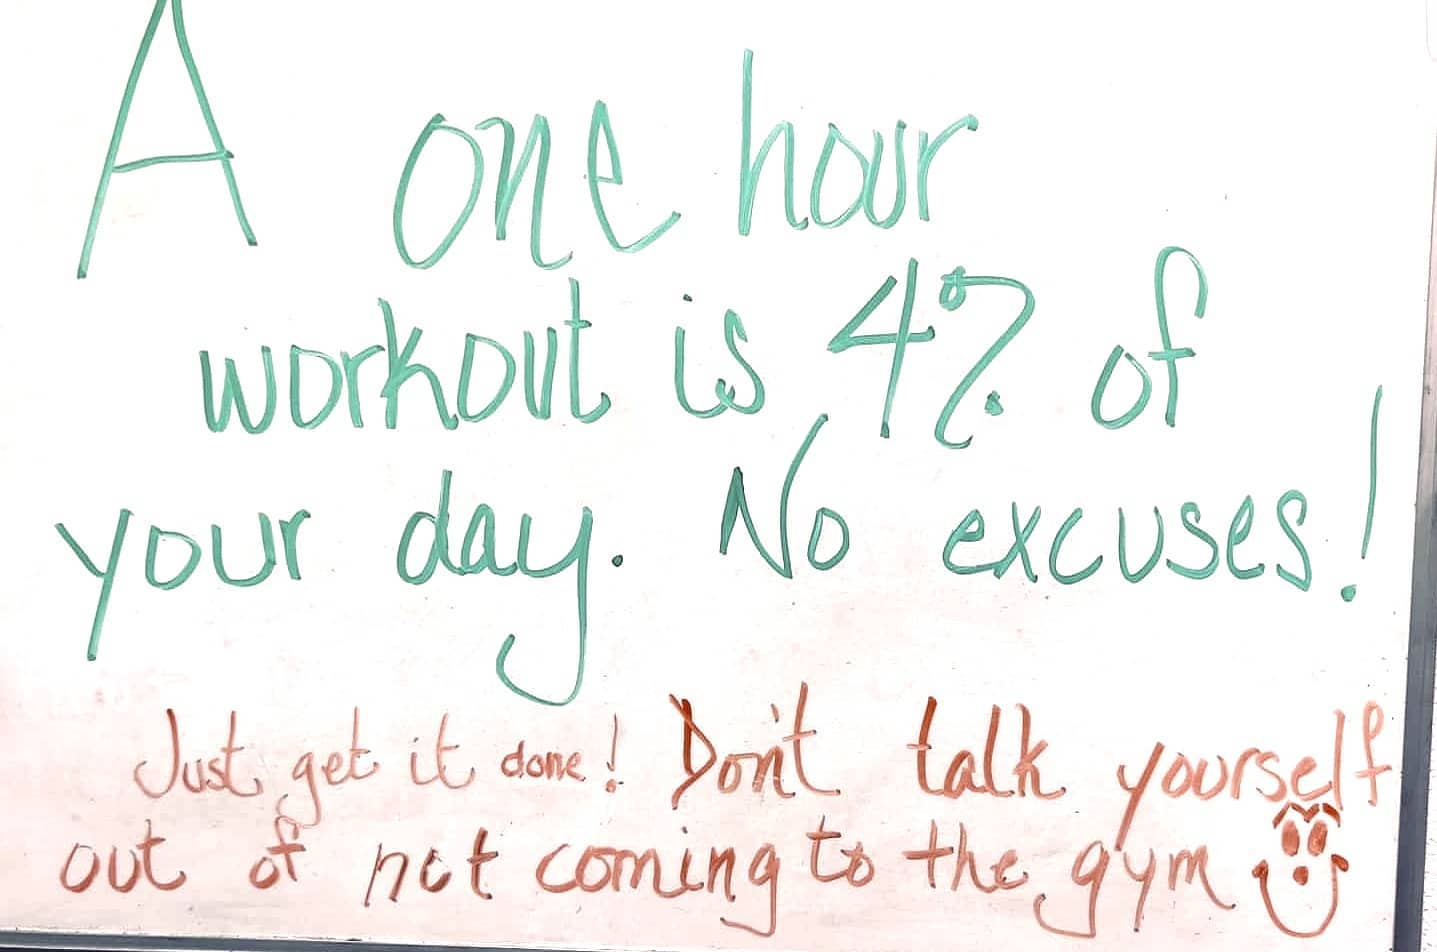 A one hour
workout is 4% of
your day. No excuses!
Just get it done! Don't talk yourself
out of not coming to the gym